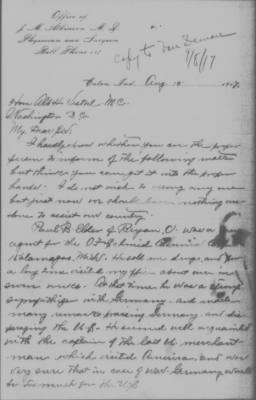 Office of
J. M. Atkinson M. D.
Physician and Surgeon
Bell Phone
Copy to Van Deman
9/8/17
Aug 1917.
Hon. Albt H. Vestal M.C.
Washington D.C.
My Dear Sir:
I hardly know whether you are the proper
person to inform of the following matter
but think you can get it into the proper
hands. I do not wish to injure any one
but just now we should leave nothing un-
done to assist our country.
Paul B. Elder of Bryan, O. was a
agent for the
Kalamazoo, Mich. He sold me drugs, and for
a long time visited my office about once in
seven weeks. At the time he was a strong
sympathizer with Germany, and made
many remarks praising Germany and dis-
paraging the U.S. He seemed well acquainted
with the captain of the last U merchant
man which visited America, and was
very sure that in case of war Germany would
be too much for the U.S.